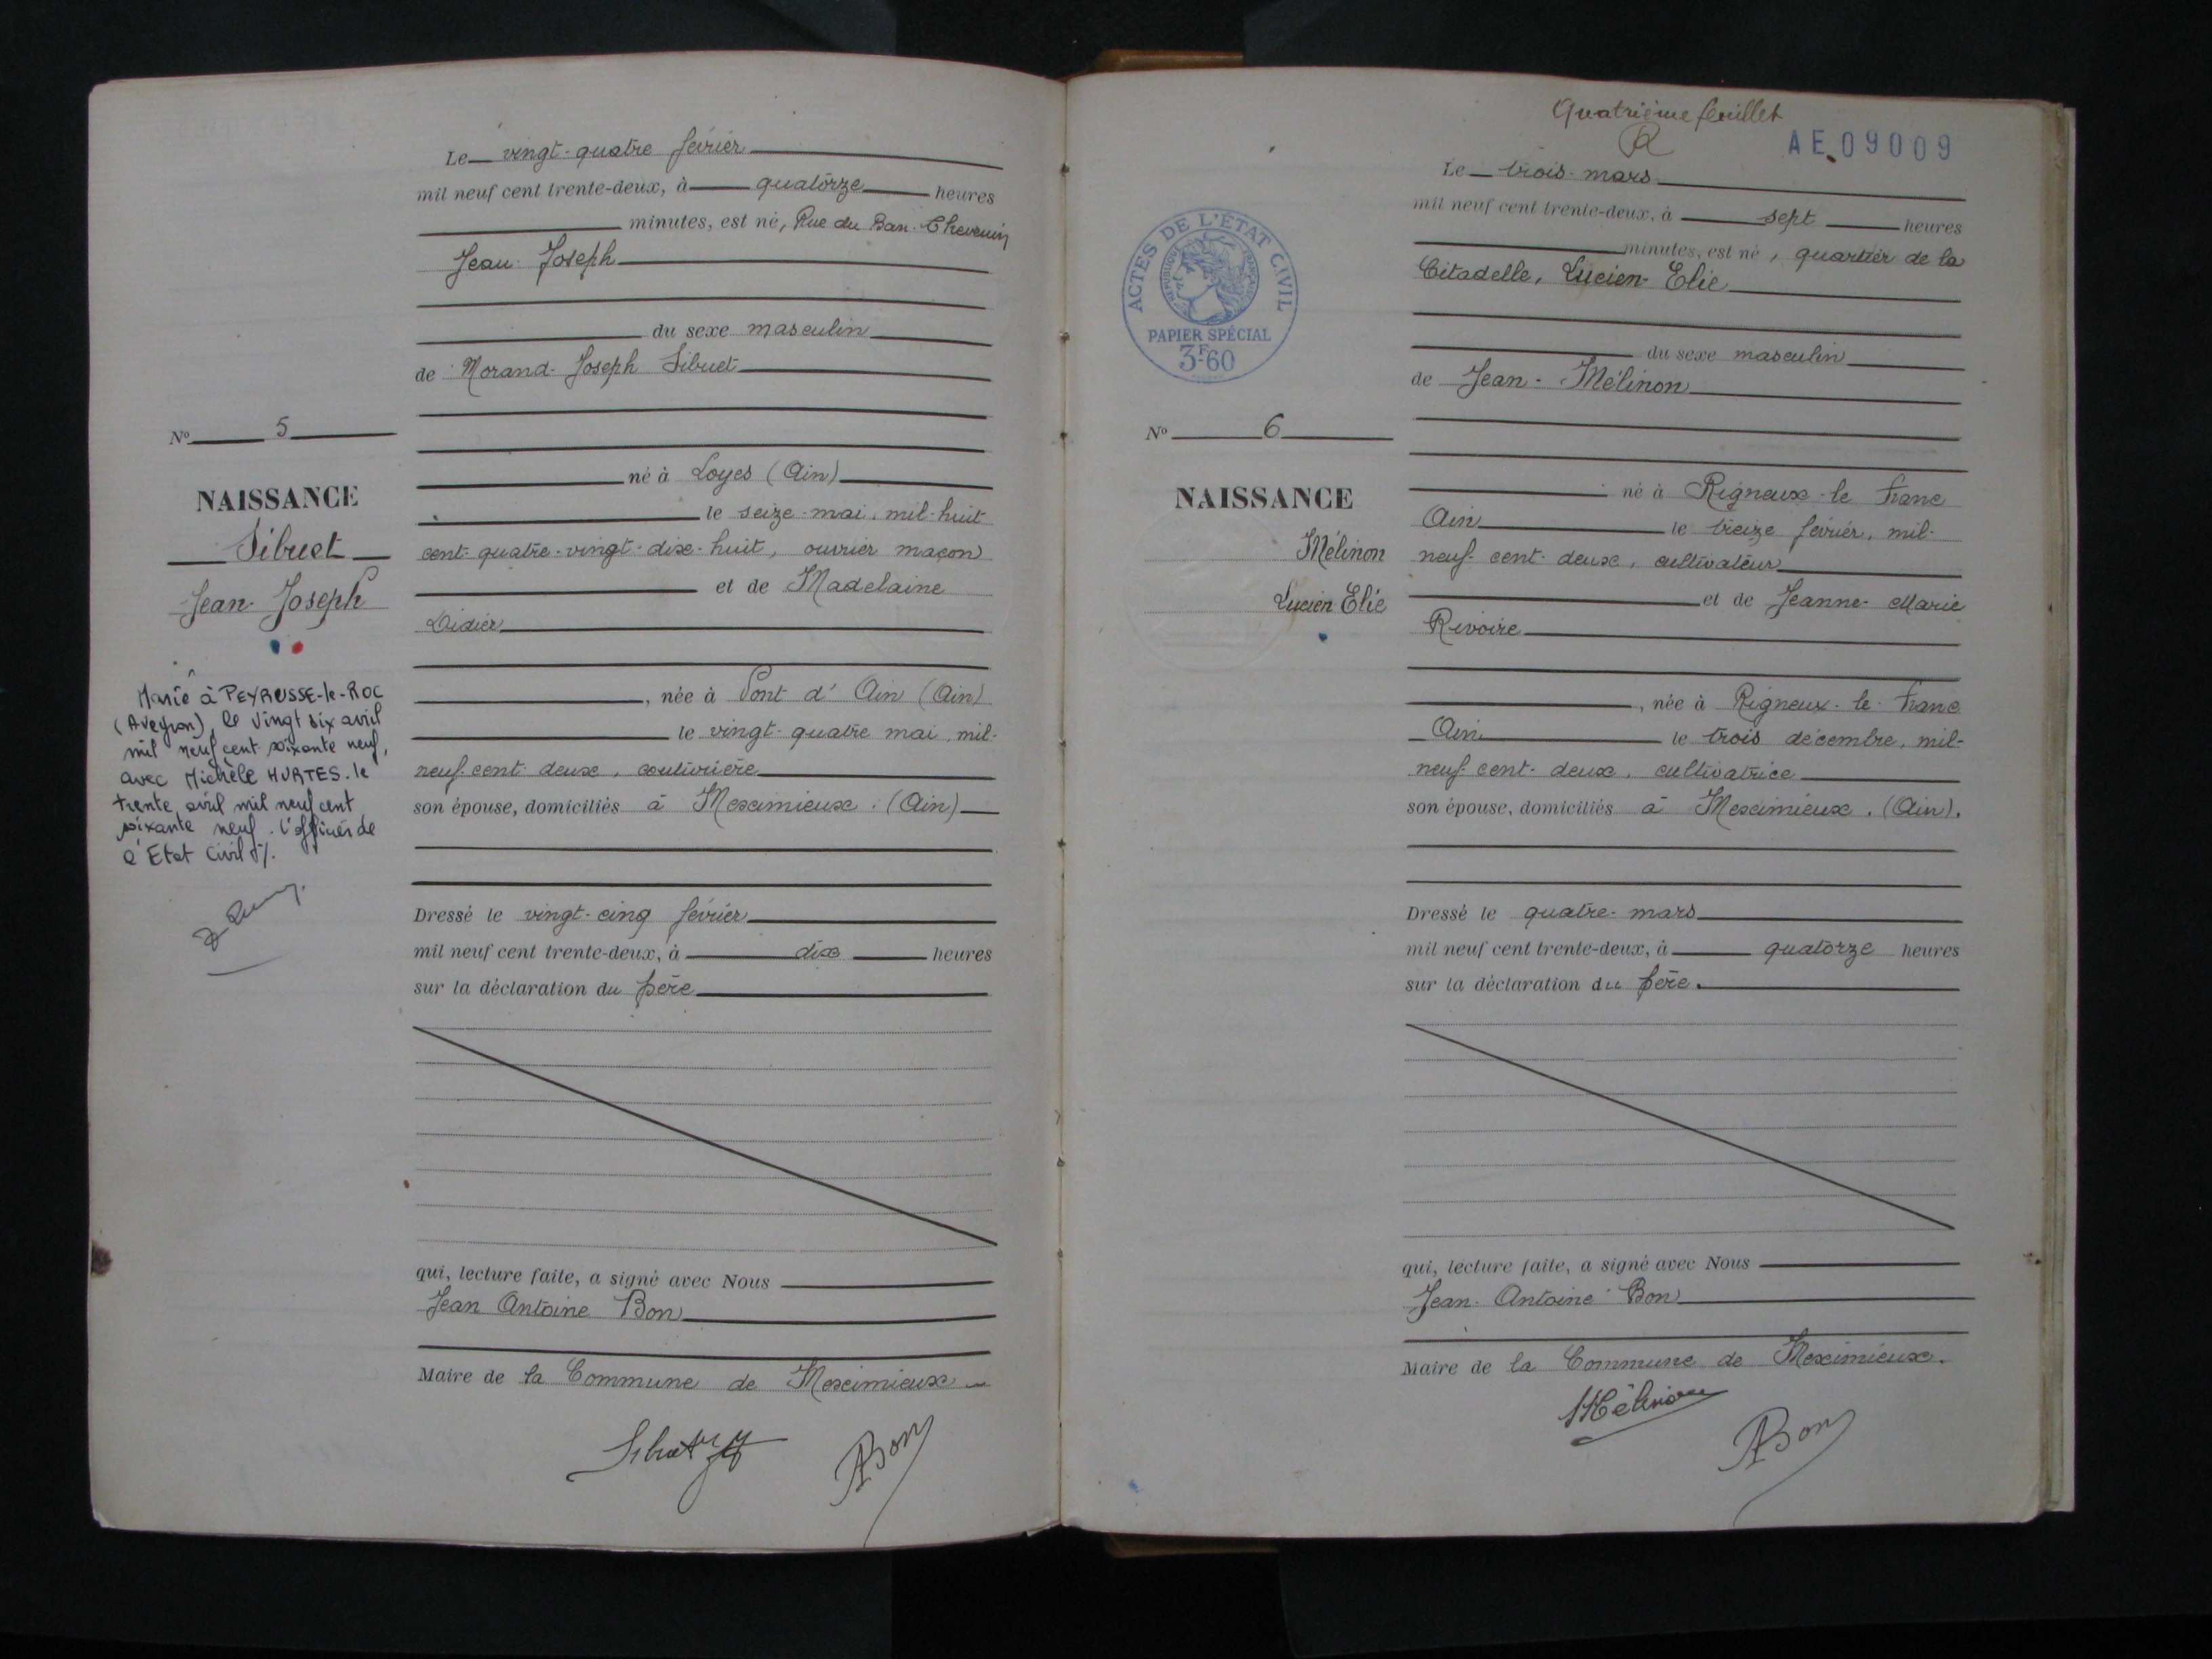 Le vingt-quatre février
mil neuf cent trente-deux, à quatorze heures
minutes, est né, Rue du Ban-Thevenin
Jean-Joseph
du sexe masculin
de Morand-Joseph Sibuet
né à Loyes (Ain)
le seize mai, mil-huit
cent-quatre-vingt-dix-huit, ouvrier maçon
et de Madelaine
Didier
née à Pont d'Ain (Ain)
le vingt-quatre mai, mil-
neuf-cent-deux, couturière
son épouse, domiciliés à Meximieux. (Ain)
Dressé le vingt-cinq février
mil neuf cent trente-deux, à dix heures
sur la déclaration du père
qui, lecture faite, a signé avec Nous
Jean Antoine Bon
Maire de la Commune de Meximieux
Sibuet
ABon
No 5
NAISSANCE
Sibuet
Jean-Joseph
Marié à PEYRUSSE-le-ROC
(Aveyron), le vingt six avril
mil neuf cent soixante neuf,
avec Michèle HURTES. le
trente avril mil neuf cent
soixante neuf. l'officier de
l'Etat Civil %.
Quatrième feuillet
AE.09009
ACTES DE L'ÉTAT CIVIL
RÉPUBLIQUE FRANÇAISE
PAPIER SPÉCIAL
3F60
No 6
NAISSANCE
Mélinon
Lucien Elie
Le trois mars
mil neuf cent trente-deux, à sept heures
minutes, est né, quartier de la
Citadelle, Lucien-Elie
du sexe masculin
de Jean-Mélinon
né à Rigneux-le Franc
Ain le treize février, mil-
neuf-cent-deux, cultivateur
et de Jeanne-Marie
Rivoire
née à Rigneux-le-Franc
Ain le trois décembre, mil-
neuf-cent-deux, cultivatrice
son épouse, domiciliés à Meximieux. (Ain).
Dressé le quatre-mars
mil neuf cent trente-deux, à quatorze heures
sur la déclaration du père.
qui, lecture faite, a signé avec Nous
Jean-Antoine Bon
Maire de la Commune de Meximieux.
Mélinon
ABon